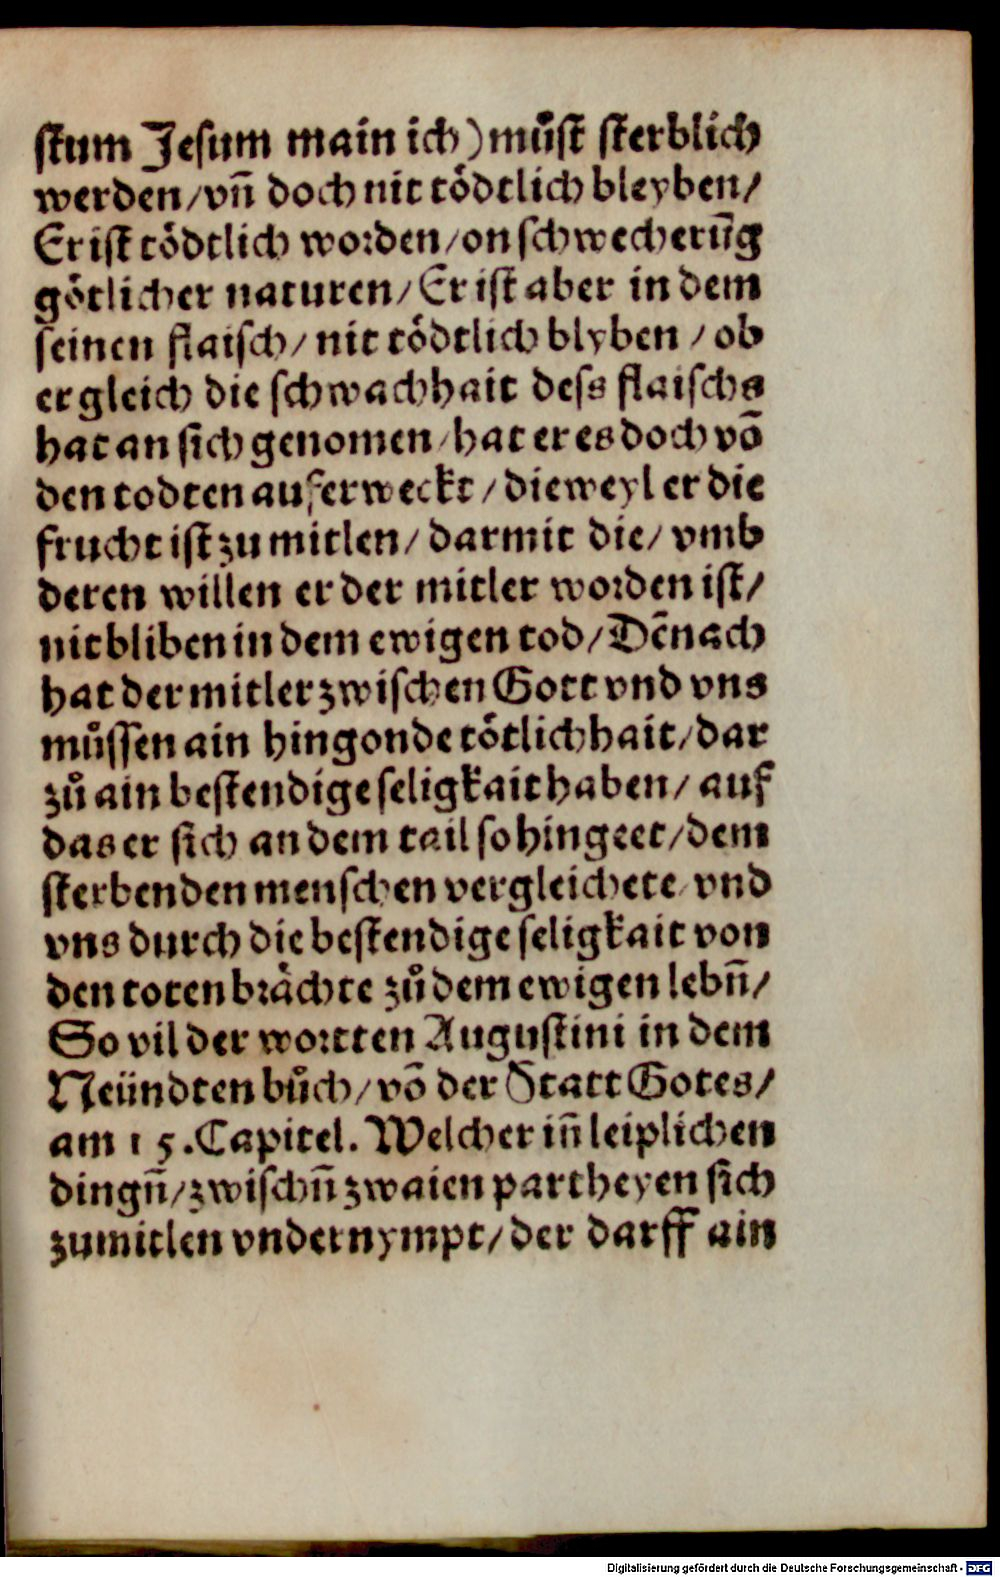 stum Jesum main ich) můst sterblich
werden/vñ doch nit tödtlich bleyben/
Er ist tödtlich worden/on schwecherūg
götlicher naturen/Er ist aber in dem
seinen flaisch/nit tödtlich blyben/ob
er gleich die schwachhait dess flaischs
hat an sich genomen/hat er es doch võ
den todten auferweckt/dieweyl er die
frucht ist zu mitlen/darmit die/vmb
deren willen er der mitler worden ist/
nit bliben in dem ewigen tod/Dẽnach
hat der mitler zwischen Gott vnd vns
můssen ain hingonde tötlichhait/dar
zů ain bestendige seligkait haben/auf
das er sich an dem tail so hingeet/dem
sterbenden menschen vergleichete/vnd
vns durch die bestendige seligkait von
den toten brächte zů dem ewigen lebñ/
So vil der wortten Augustini in dem
Neündten bůch/võ der Statt Gotes/
am 15.Capitel. Welcher iñ leiplichen
dingñ/zwischñ zwaien partheyen sich
zumitlen vndernympt/der darff ain
Digitalisierung gefördert durch die Deutsche Forschungsgemeinschaft - DFG